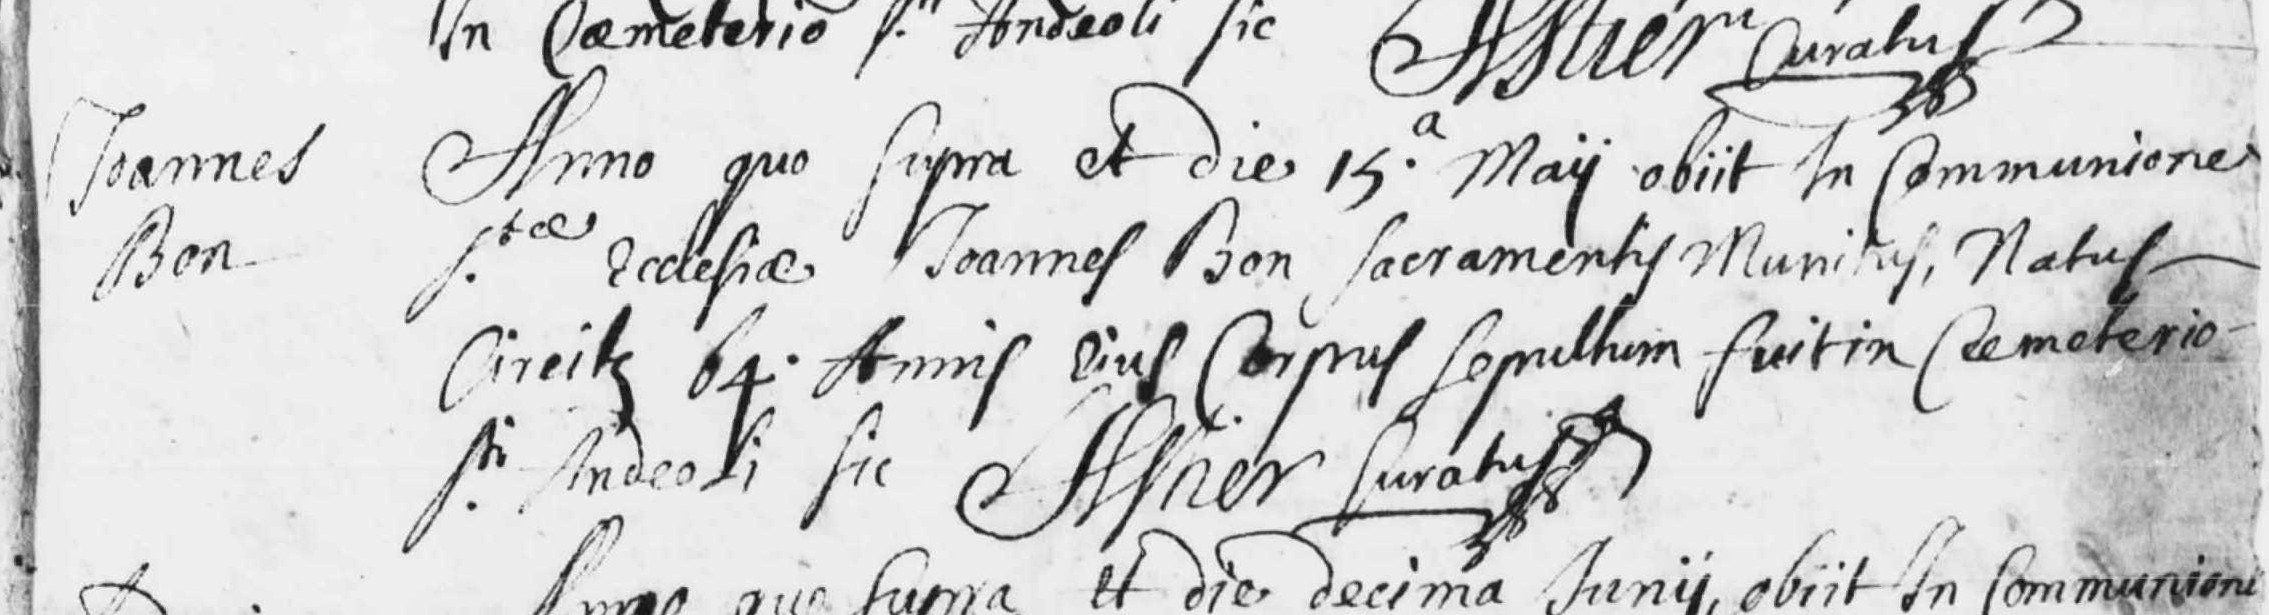 In Cæmeterio s.ti Andeoli sic Astier Curatus
Joannes Anno quo supra et die 15.a Maij obiit In Communione
Bon s.tæ Ecclesiæ Joannes Bon sacramentis Munitus, Natus
Circitz 64. Annis Eius Corpus sepultum fuit in Cæmeterio
s.ti Andeoli sic Astier Curatus
Anno quo supra et die decima Junij, obiit In Communione